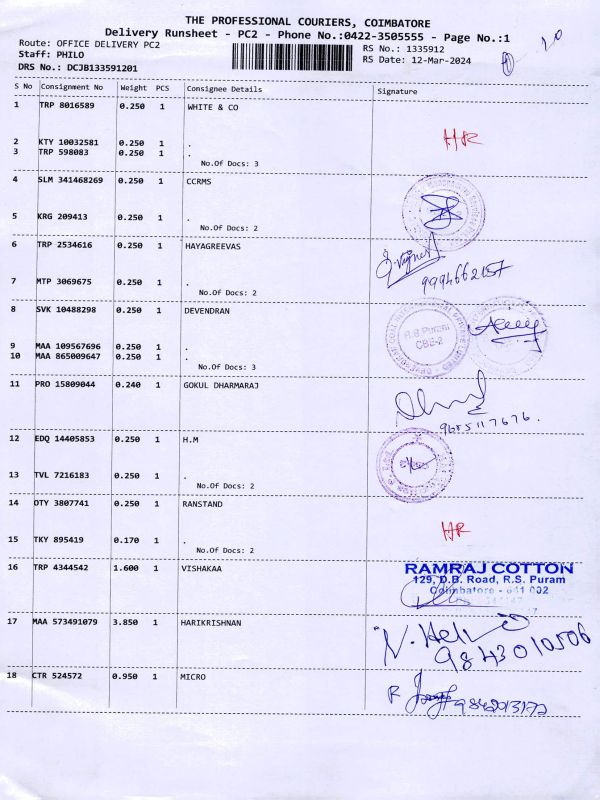 THE PROFESSIONAL COURIERS, COIMBATORE
Delivery Runsheet - PC2 - Phone No.:0422-3505555 - Page No.:1
Route: OFFICE DELIVERY PC2
RS No.: 1335912
Staff: PHILO
RS Date: 12-Mar-2024
DRS No.: DCJB133591201
S No Consignment No Weight PCS Consignee Details Signature
1 TRP 8016589 0.250 1 WHITE & CO
HR
2 KTY 10032581 0.250 1 .
3 TRP 598083 0.250 1 .
No.Of Docs: 3
4 SLM 341468269 0.250 1 CCRMS
5 KRG 209413 0.250 1 .
No.Of Docs: 2
6 TRP 2534616 0.250 1 HAYAGREEVAS
9994662157
7 MTP 3069675 0.250 1 .
No.Of Docs: 2
8 SVK 10488298 0.250 1 DEVENDRAN
R.S Puram
CBE-2
9 MAA 109567696 0.250 1 .
10 MAA 865009647 0.250 1 .
No.Of Docs: 3
11 PRO 15809044 0.240 1 GOKUL DHARMARAJ
9685117676.
12 EDQ 14405853 0.250 1 H.M
13 TVL 7216183 0.250 1 .
No.Of Docs: 2
14 OTY 3807741 0.250 1 RANSTAND
HR
15 TKY 895419 0.170 1 .
No.Of Docs: 2
16 TRP 4344542 1.600 1 VISHAKAA
RAMRAJ COTTON
129, D.B. Road, R.S. Puram
Coimbatore - 641 002
17 MAA 573491079 3.850 1 HARIKRISHNAN
9843010506
18 CTR 524572 0.950 1 MICRO
9842013172